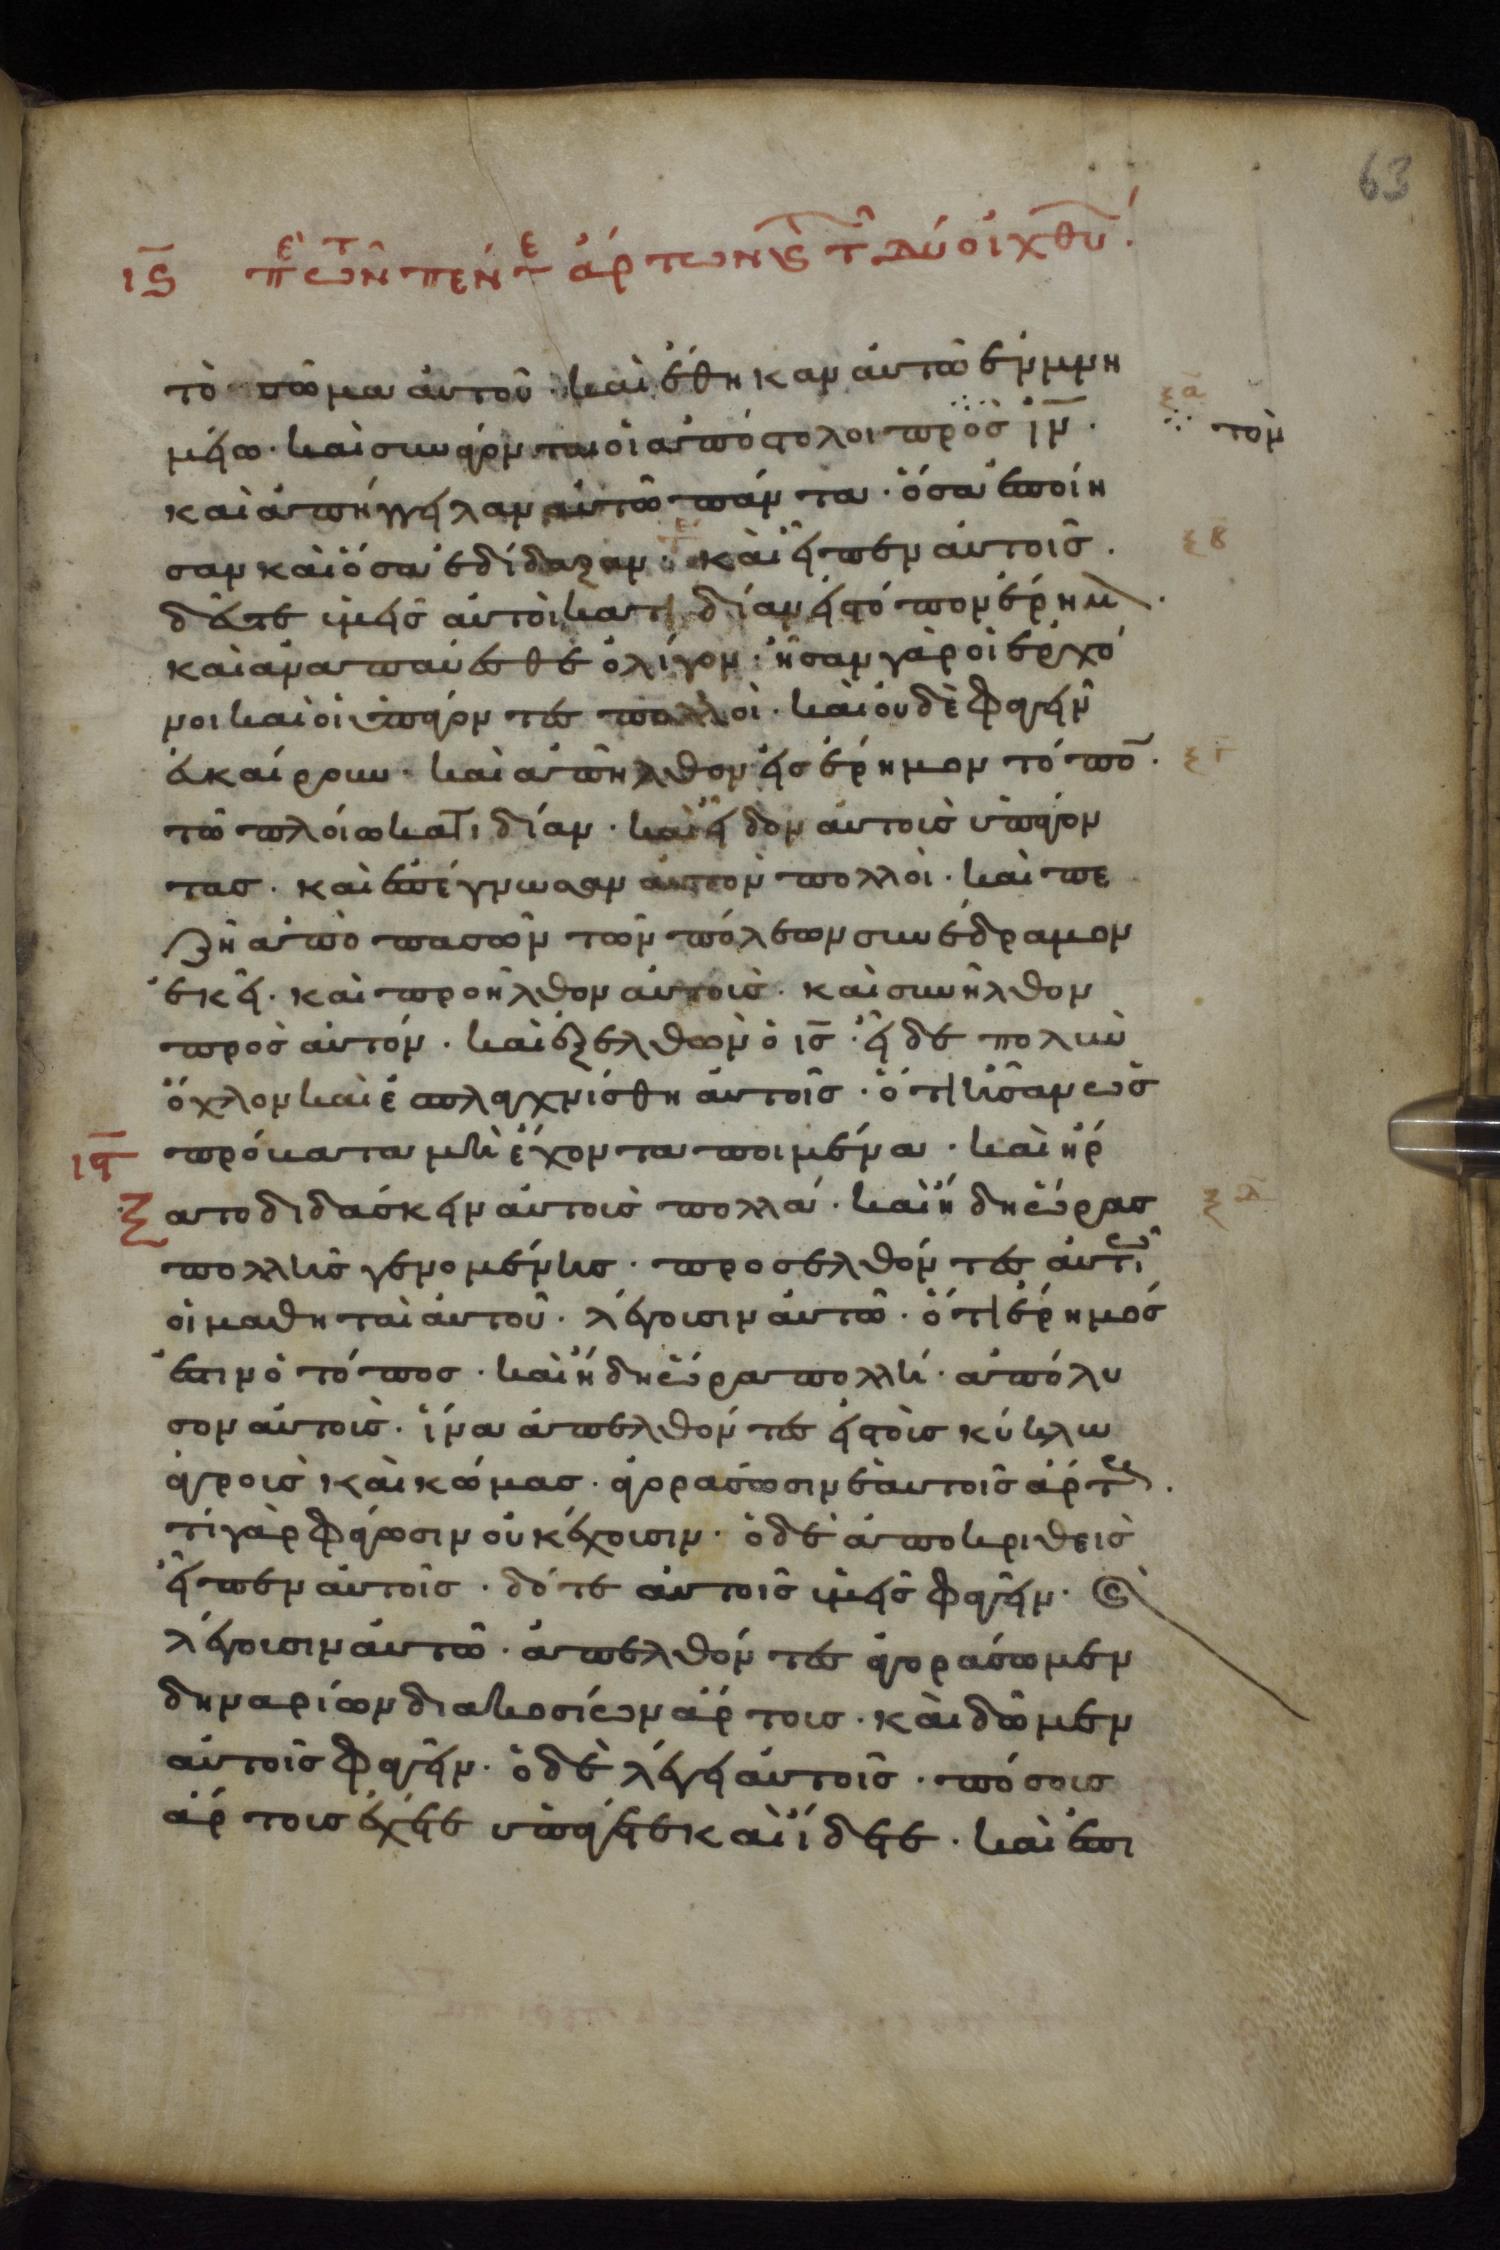 63
ιϛ πε τῶν πέντε ἄρτων ϛ τ δύο ἰχθύ
τὸ πτῶμα αὐτοῦ · καὶ ἔθηκαν αὐτῶ ἐν μνη
μείω · καὶ συνάγονται οἱ ἀπόστολοι πρὸσ ἰν̅ · τὸν
καὶ ἀπήγγειλαν αὐτῶ πάντα · ὅσα ἐποίη
σαν καὶ ὅσα ἐδίδαξαν · καὶ εἶπεν αὐτοῖσ · ξβ
δεῦτε ὑμεῖσ αὐτοὶ κατ ιδίαν εἰσ τόπον ἔρημ ·
καὶ αναπαύεσθε ὀλίγον · ἦσαν γὰρ οἱ ἐρχό
μοι καὶ οἱ ὑπάγοντες πολλοὶ · καὶ οὐδὲ φαγεῖν
εὐκαίρουν · καὶ ἀπῆλθον εἰσ ἔρημον τόπο · ξγ
τῶ πλοίω κατ ιδίαν · καὶ εἶδον αὐτοὺσ ὑπάγον
τασ · καὶ ἐπέγνωσαν αὐτὸν πολλοὶ · καὶ πε
ζῆ ἀπὸ πασῶν τῶν πόλεων συνέδραμον
ἐκεῖ · καὶ προῆλθον αὐτοὺσ · καὶ συνῆλθον
πρὸσ αὐτόν · καὶ ἐξελθὼν ὁ ισ̅ · εἶδε πολὺν
ὄχλον καὶ ἐσπλαγχνίσθη αὐτοῖσ · ὅτι ἦσαν ὡσ
πρόβατα μὴ ἔχοντα ποιμένα · καὶ ἤρ
ξατο διδάσκειν αὐτοὺσ πολλά · καὶ ἤδη ὥρασ ξδ
πολλῆσ γενομένησ · προσελθόντες αὐτῶ
οἱ μαθηταὶ αὐτοῦ · λέγουσιν αὐτῶ · ὅτι ἔρημόσ
ἐστιν ὁ τόποσ · καὶ ἤδη ὥρα πολλή · ἀπόλυ
σον αὐτοὺσ · ἵνα ἀπελθόντες εἰσ τοὺσ κύκλω
ἀγροὺσ καὶ κώμασ · ἀγοράσωσιν ἑαυτοῖσ ἄρτους ·
τί γὰρ φάγωσιν οὐκ έχουσιν · ὁ δὲ ἀποκριθεὶσ
εἶπεν αὐτοῖσ · δότε αὐτοῖσ ὑμεῖσ φαγεῖν · ϛ
λέγουσιν αὐτῶ · ἀπελθόντες ἀγοράσωμεν
δηναρίων διακοσίων ἄρτουσ · καὶ δῶμεν
αὐτοῖσ φαγεῖν · ὁ δὲ λέγει αὐτοῖσ · πόσουσ
ἄρτουσ ἔχετε ὑπάγετε καὶ ἴδετε · καὶ ἐπι